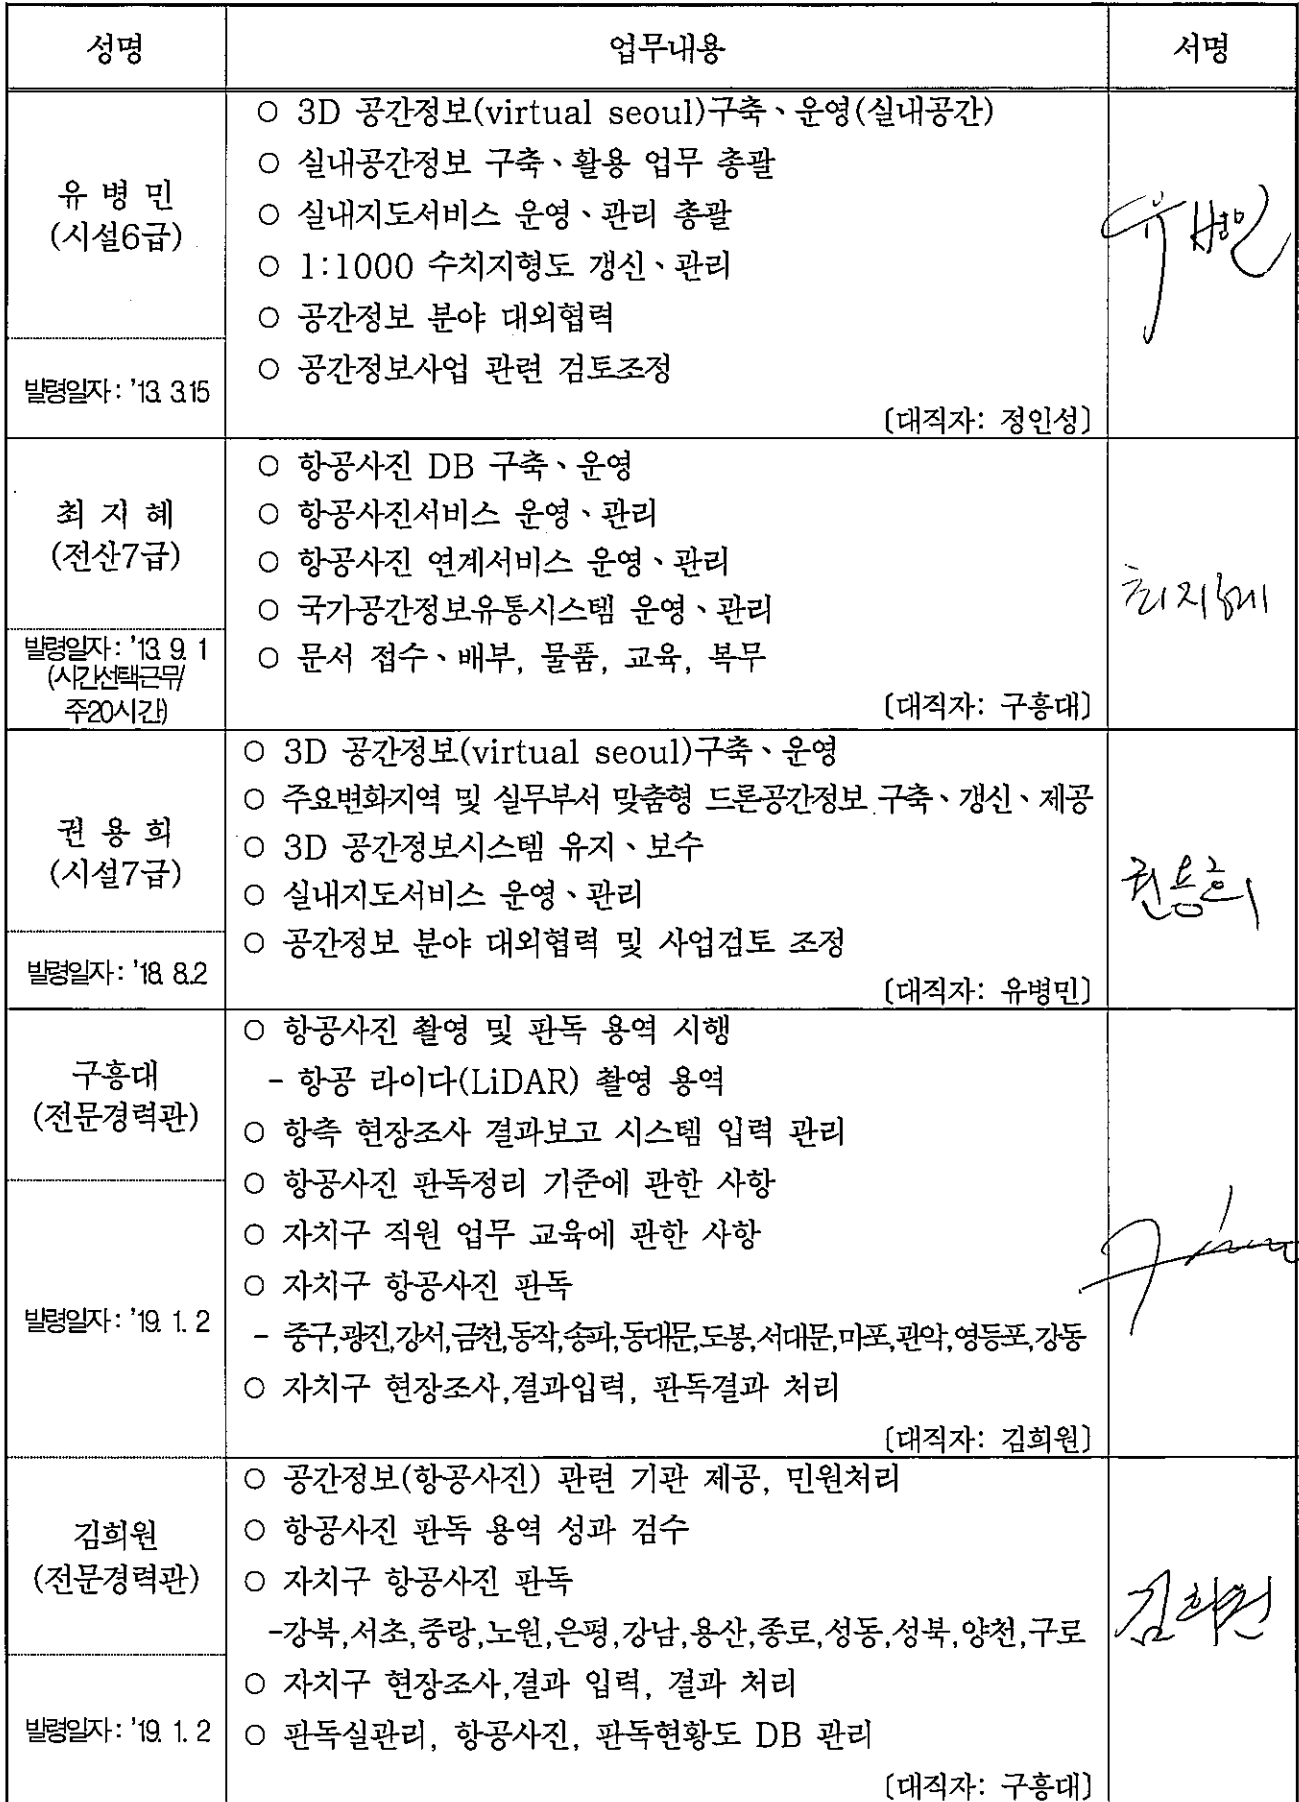 성명 업무내용 서명
유 병 민
(시설6급)
발령일자 : '13. 3.15
○ 3D 공간정보(virtual seoul)구축、운영(실내공간)
○ 실내공간정보 구축、활용 업무 총괄
○ 실내지도서비스 운영、관리 총괄
○ 1:1000 수치지형도 갱신、관리
○ 공간정보 분야 대외협력
○ 공간정보사업 관련 검토조정
〔대직자: 정인성〕
유병민
최 지 혜
(전산7급)
발령일자 : '13. 9. 1
(시간선택근무/
주20시간)
○ 항공사진 DB 구축、운영
○ 항공사진서비스 운영、관리
○ 항공사진 연계서비스 운영、관리
○ 국가공간정보유통시스템 운영、관리
○ 문서 접수、배부, 물품, 교육, 복무
〔대직자: 구흥대〕
최지혜
권 용 희
(시설7급)
발령일자 : '18. 8.2
○ 3D 공간정보(virtual seoul)구축、운영
○ 주요변화지역 및 실무부서 맞춤형 드론공간정보 구축、갱신、제공
○ 3D 공간정보시스템 유지、보수
○ 실내지도서비스 운영、관리
○ 공간정보 분야 대외협력 및 사업검토 조정
〔대직자: 유병민〕
권용희
구흥대
(전문경력관)
발령일자 : '19. 1. 2
○ 항공사진 촬영 및 판독 용역 시행
- 항공 라이다(LiDAR) 촬영 용역
○ 항측 현장조사 결과보고 시스템 입력 관리
○ 항공사진 판독정리 기준에 관한 사항
○ 자치구 직원 업무 교육에 관한 사항
○ 자치구 항공사진 판독
- 중구,광진,강서,금천,동작,송파,동대문,도봉,서대문,마포,관악,영등포,강동
○ 자치구 현장조사,결과입력, 판독결과 처리
〔대직자: 김희원〕
김희원
(전문경력관)
발령일자 : '19. 1. 2
○ 공간정보(항공사진) 관련 기관 제공, 민원처리
○ 항공사진 판독 용역 성과 검수
○ 자치구 항공사진 판독
-강북,서초,중랑,노원,은평,강남,용산,종로,성동,성북,양천,구로
○ 자치구 현장조사,결과 입력, 결과 처리
○ 판독실관리, 항공사진, 판독현황도 DB 관리
〔대직자: 구흥대〕
김희원